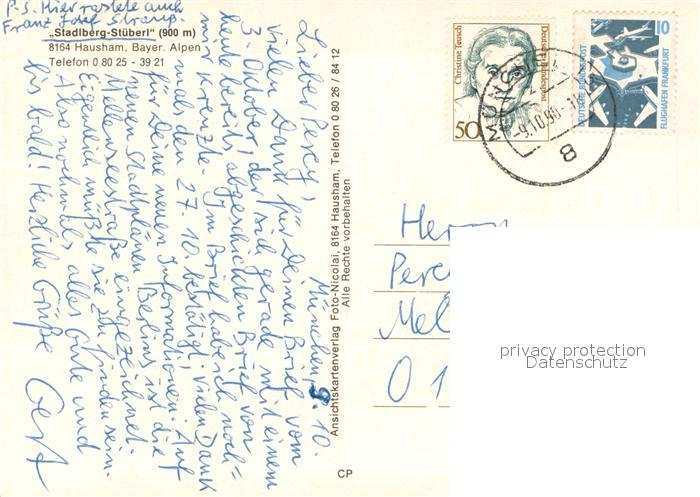 P.S. Hier rastete auch
Franz Josef Strauß.
„Stadlberg-Stüberl" (900 m)
8164 Hausham, Bayer. Alpen
Telefon 0 80 25 - 39 21
München, 8.10.
Lieber Percy,
vielen Dank für Deinen Brief vom
3. Oktober, der sich gerade mit einem
heute bereits abgeschickten Brief von
mir kreuzte. Im Brief habe ich noch=
mals den 27.10. bestätigt. Vielen Dank
für Deine neuen Informationen. Auf
neuen Stadtplänen Berlins ist die
Mellenseestraße eingezeichnet.
Eigentlich müßte sie zu finden sein.
Also nochmals alles Gute und
bis bald! Herzliche Grüße Gert
Ansichtskartenverlag Foto-Nicolai, 8164 Hausham, Telefon 0 80 26 / 84 12
Alle Rechte vorbehalten
CP
Christine Teusch
Deutsche Bundespost
50
10
DEUTSCHE BUNDESPOST
FLUGHAFEN FRANKFURT
MÜNCHEN
-9.10.90
8
Herrn
Perc
Mel
0 1
privacy protection
Datenschutz